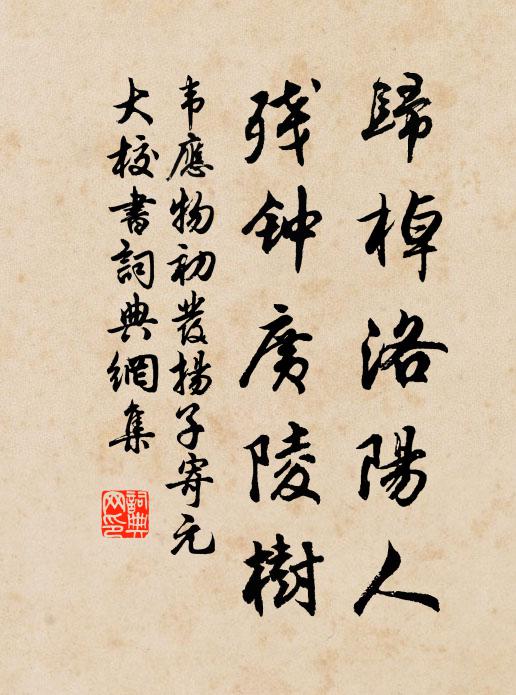 歸棹洛陽人
残钟廣陵樹
韦應物初發揚子寄元
大校書詞典網集
詞典网印